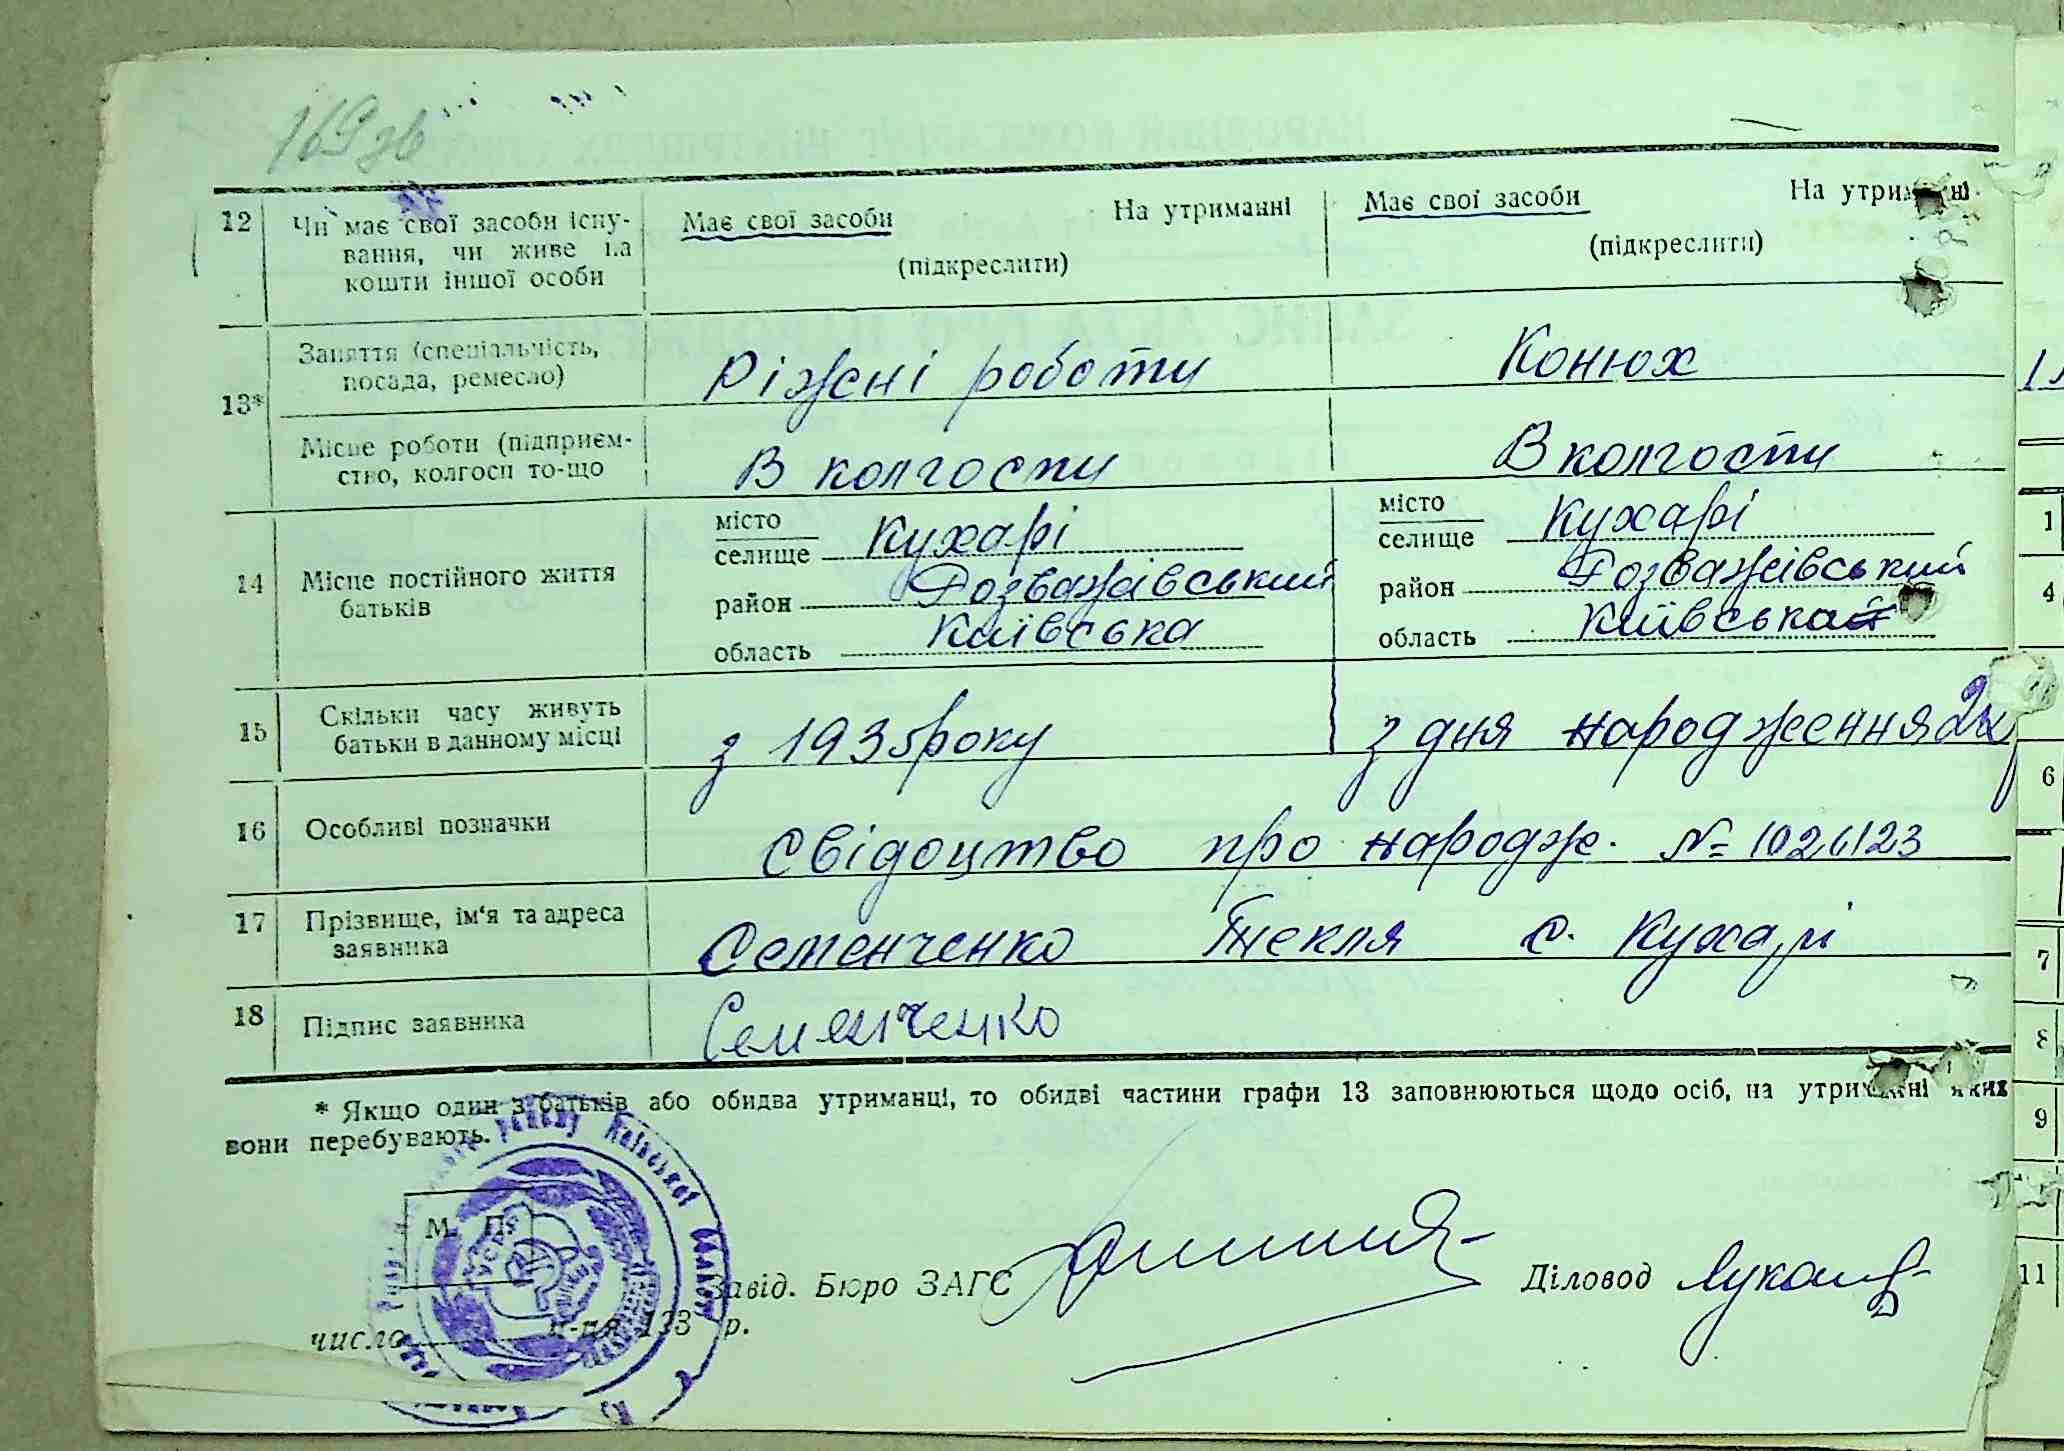 169 зв
12 Чи має свої засоби існу- Має свої засоби На утриманні Має свої засоби На утриманні
вання, чи живе на (підкреслити) (підкреслити)
кошти іншої особи
13* Заняття (спеціальність, Ріжні роботи Конюх
посада, ремесло)
Місце роботи (підприєм- В колгоспи В колгоспи
ство, колгосп то-що
14 Місце постійного життя батьків місто селище Кухарі місто селище Кухарі
район Розважівський район Розважівський
область Київська область Київська
15 Скільки часу живуть з 1935 року з дня народження
батьки в данному місці
16 Особливі позначки Свідоцтво про народж. № 1026123
17 Прізвище, ім'я та адреса Семенченко Текля с. Кухарі
заявника
18 Підпис заявника Семенченко
* Якщо один з батьків або обидва утриманці, то обидві частини графи 13 заповнюються щодо осіб, на утриманні яких
вони перебувають.
району Київської області
М. П.
Завід. Бюро ЗАГС Діловод
число м-ця 193 р.
1
4
6
7
8
9
11